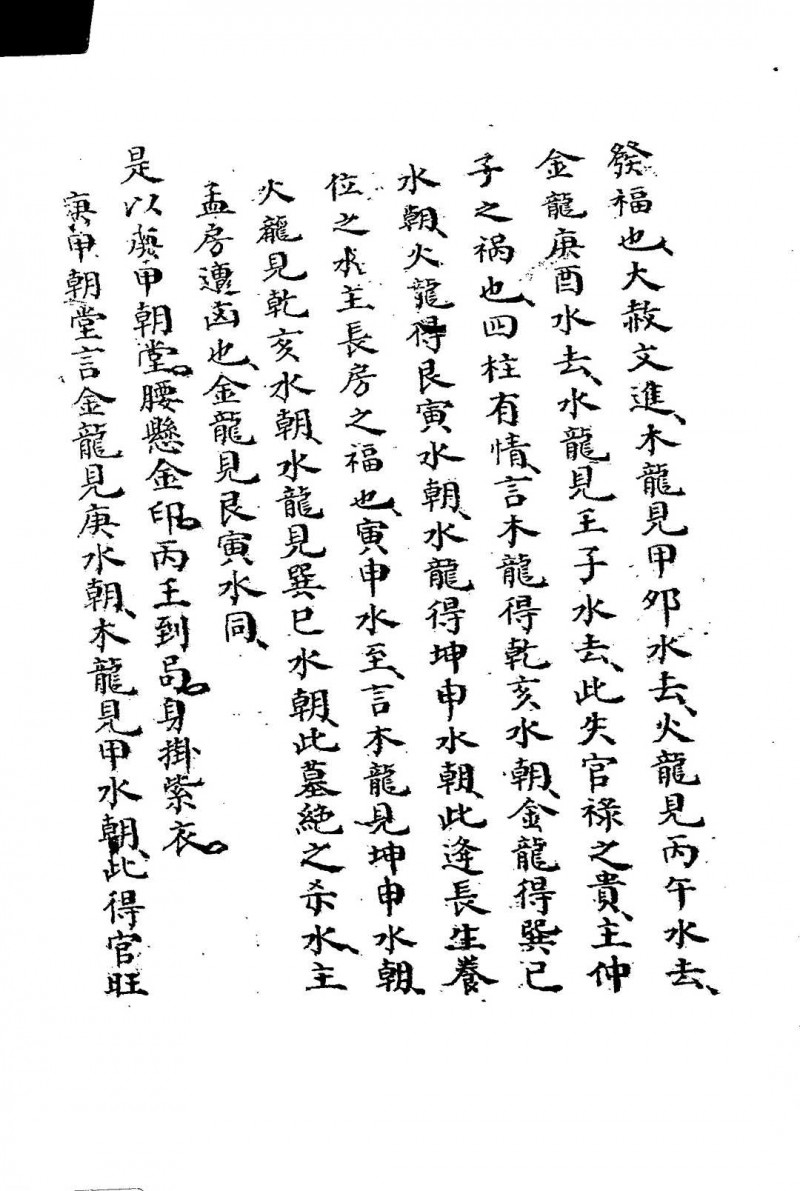 發福也、大赦文進、木龍見甲卯水去、火龍見丙午水去、
金龍庚酉水去、水龍見壬子水去、此失官祿之貴、主仲
子之禍也、四柱有情、言木龍得乾亥水朝、金龍得巽巳
水朝、火龍得艮寅水朝、水龍得坤申水朝、此逢長生養
位之水、主長房之福也、寅申水至、言木龍見坤申水朝
火龍見乾亥水朝、水龍見巽巳水朝、此墓絶之杀水、主
孟房遭凶也、金龍見艮寅水同、
是以庚甲朝堂。腰懸金印。丙壬到局。身掛紫衣。
庚甲朝堂言金龍見庚水朝、木龍見甲水朝、此得官旺